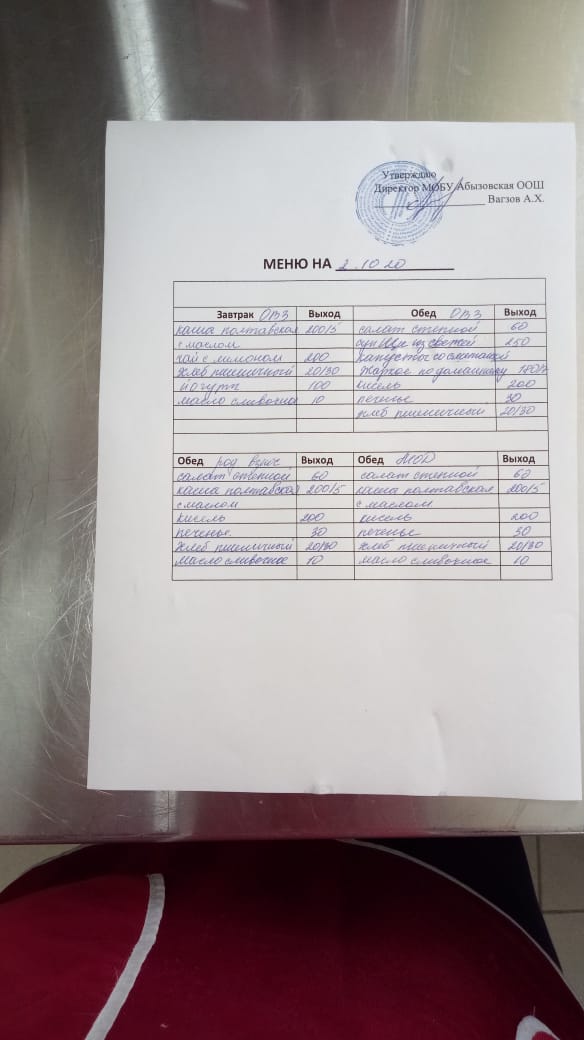 Утверждаю
Директор МОБУ Абызовская ООШ
Вагзов А.Х.
МЕНЮ НА 2.10 20
Завтрак ОВЗ Выход Обед ОВЗ Выход
каша полтавская 200/5 салат степной 60
с маслом суп Щи из свежей 250
чай с лимоном 200 капусты со сметаной
хлеб пшеничный 20/30 Жаркое по домашнему
йогурт 100 кисель 200
масло сливочное 10 печенье 30
хлеб пшеничный 20/30
Обед род взнос Выход Обед Выход
салат степной 60 салат степной 60
каша полтавская 200/5 каша полтавская 200/5
с маслом с маслом
кисель 200 кисель 200
печенье 30 печенье 30
хлеб пшеничный 20/30 хлеб пшеничный 20/30
масло сливочное 10 масло сливочное 10